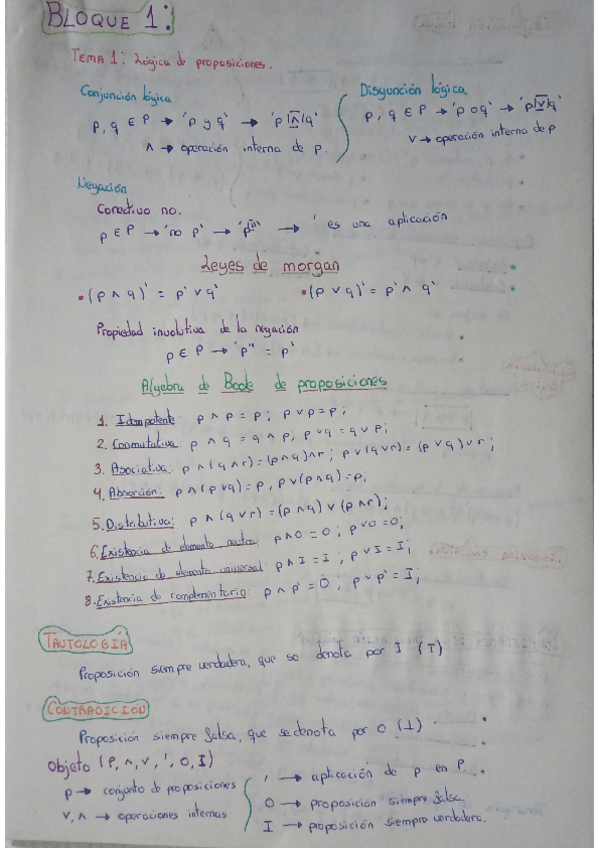 BLOQUE 1:
TEMA 1: Lógica de proposiciones.
Conjunción lógica
p, q ∈ P → 'p y q' → 'p |∧| q'
∧ → operación interna de p.
Disyunción lógica
p, q ∈ P → 'p o q' → 'p |∨| q'
∨ → operación interna de p
Negación
Conectivo no.
p ∈ P → 'no p' → 'p|'|' → ' es una aplicación
Leyes de morgan
• (p ∧ q)' = p' ∨ q'
• (p ∨ q)' = p' ∧ q'
Propiedad involutiva de la negación
p ∈ P → 'p'' = p'
Algebra de Boole de proposiciones
1. Idempotente: p ∧ p = p ; p ∨ p = p ;
2. Conmutativa: p ∧ q = q ∧ p ; p ∨ q = q ∨ p ;
3. Asociativa: p ∧ (q ∧ r) = (p ∧ q) ∧ r ; p ∨ (q ∨ r) = (p ∨ q) ∨ r ;
4. Absorción: p ∧ (p ∨ q) = p , p ∨ (p ∧ q) = p ;
5. Distributiva: p ∧ (q ∨ r) = (p ∧ q) ∨ (p ∧ r) ;
6. Existencia de elemento neutro: p ∧ O = O ; p ∨ O = O ;
7. Existencia de elemento universal: p ∧ I = I ; p ∨ I = I ;
8. Existencia de complementario: p ∧ p' = O ; p ∨ p' = I ;
TAUTOLOGÍA
Proposición siempre verdadera, que se denota por I (T)
CONTRADICION
Proposición siempre falsa, que se denota por O (⊥)
Objeto (P, ∧, ∨, ', O, I)
p → conjunto de proposiciones
∨, ∧ → operaciones internas
' → aplicación de p en P.
O → proposición siempre falsa.
I → proposición siempre verdadera.